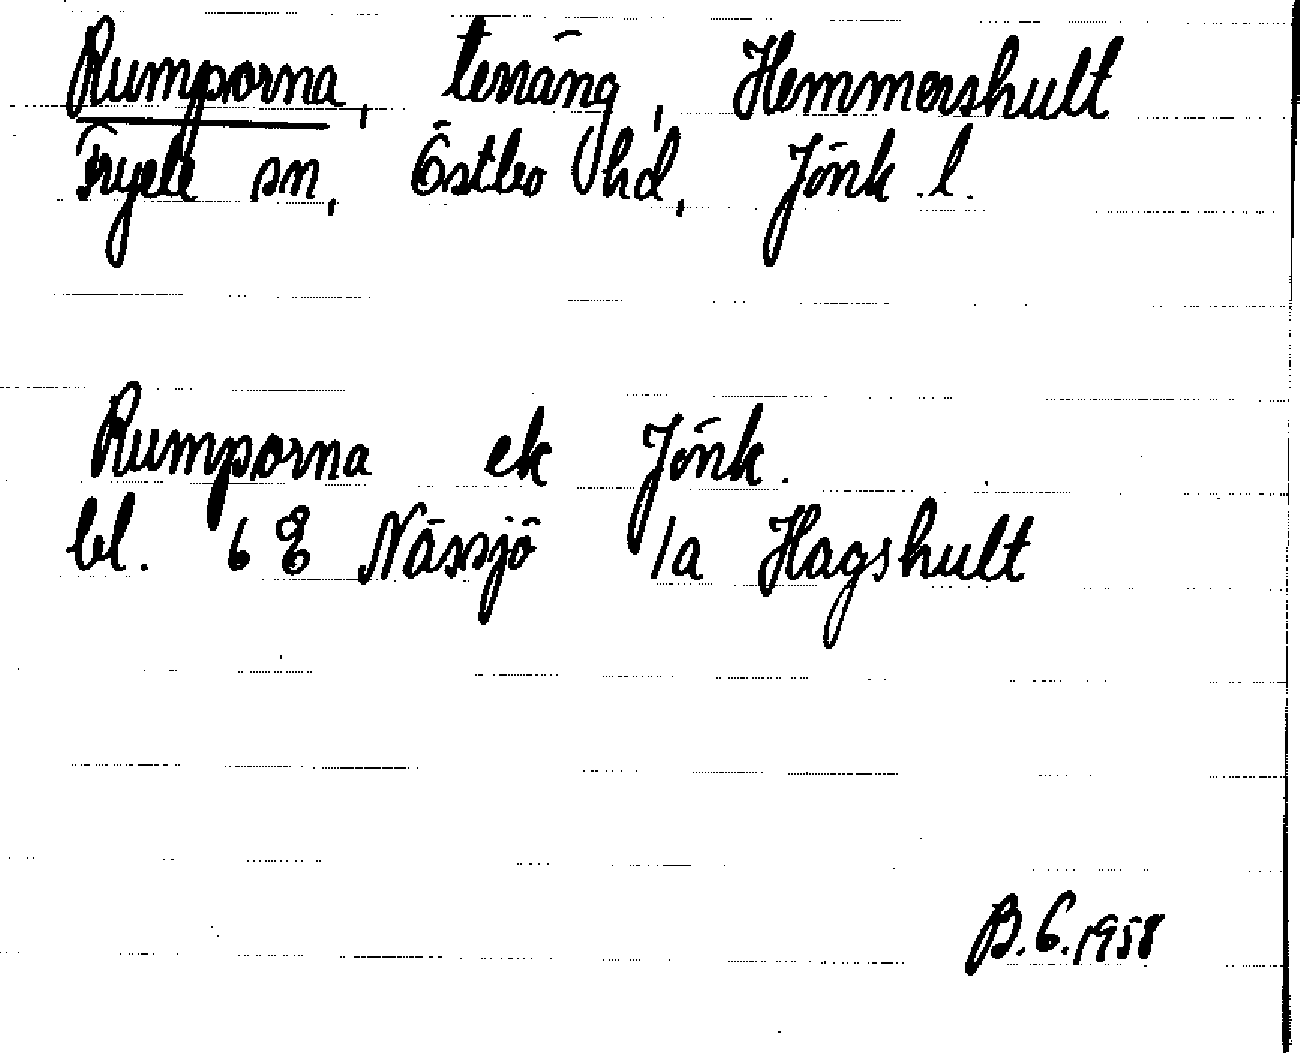 Rumporna, terräng, Hemmershult
Fryele sn, Östbo hd, Jönk. l.
Rumporna ek Jönk.
bl. 6 E Nässjö 1a Hagshult
B.G. 1958